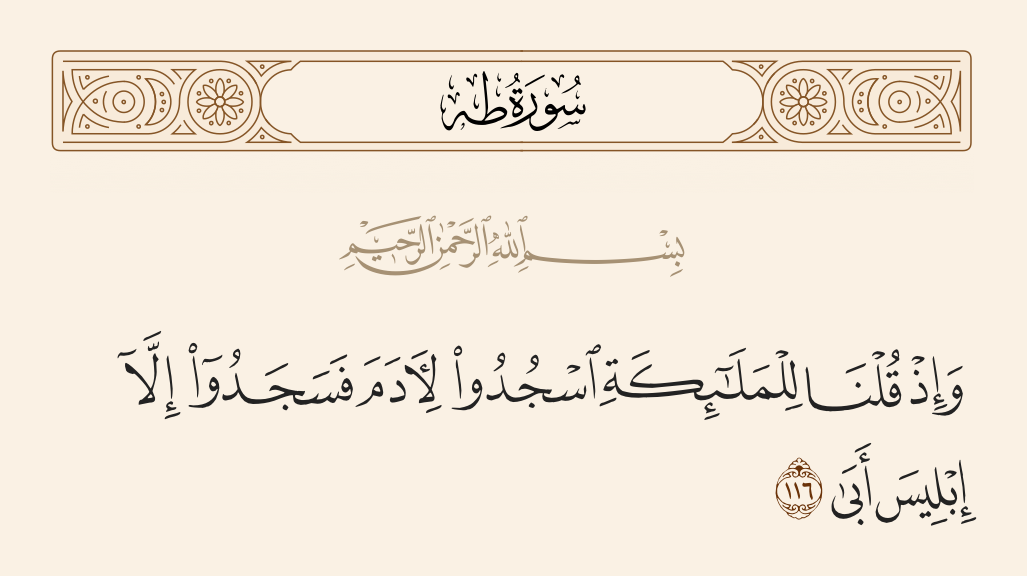 سُورَةُ طه
بِسْمِ ٱللَّهِ ٱلرَّحْمَٰنِ ٱلرَّحِيمِ
وَإِذْ قُلْنَا لِلْمَلَـٰٓئِكَةِ ٱسْجُدُوا۟ لِـَٔادَمَ فَسَجَدُوٓا۟ إِلَّآ
إِبْلِيسَ أَبَىٰ ١١٦